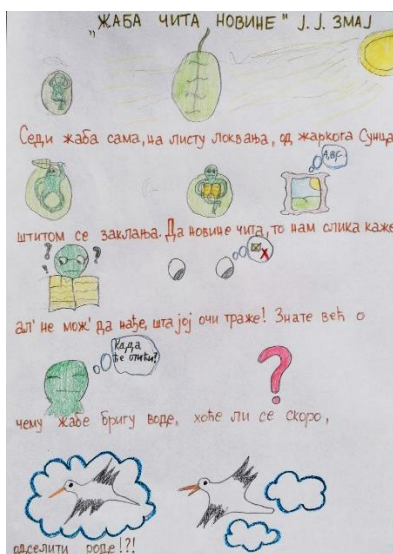 „ЖАБА ЧИТА НОВИНЕ" Ј. Ј. ЗМАЈ
Седи жаба сама, на листу локвања, од жаркога Сунца
штитом се заклања. Да новине чита, то нам слика каже
ал' не мож' да нађе, шта јој очи траже! Знате већ о
Када
ће отићи?
чему жабе бригу воде, хоће ли се скоро,
одселити роде!?!